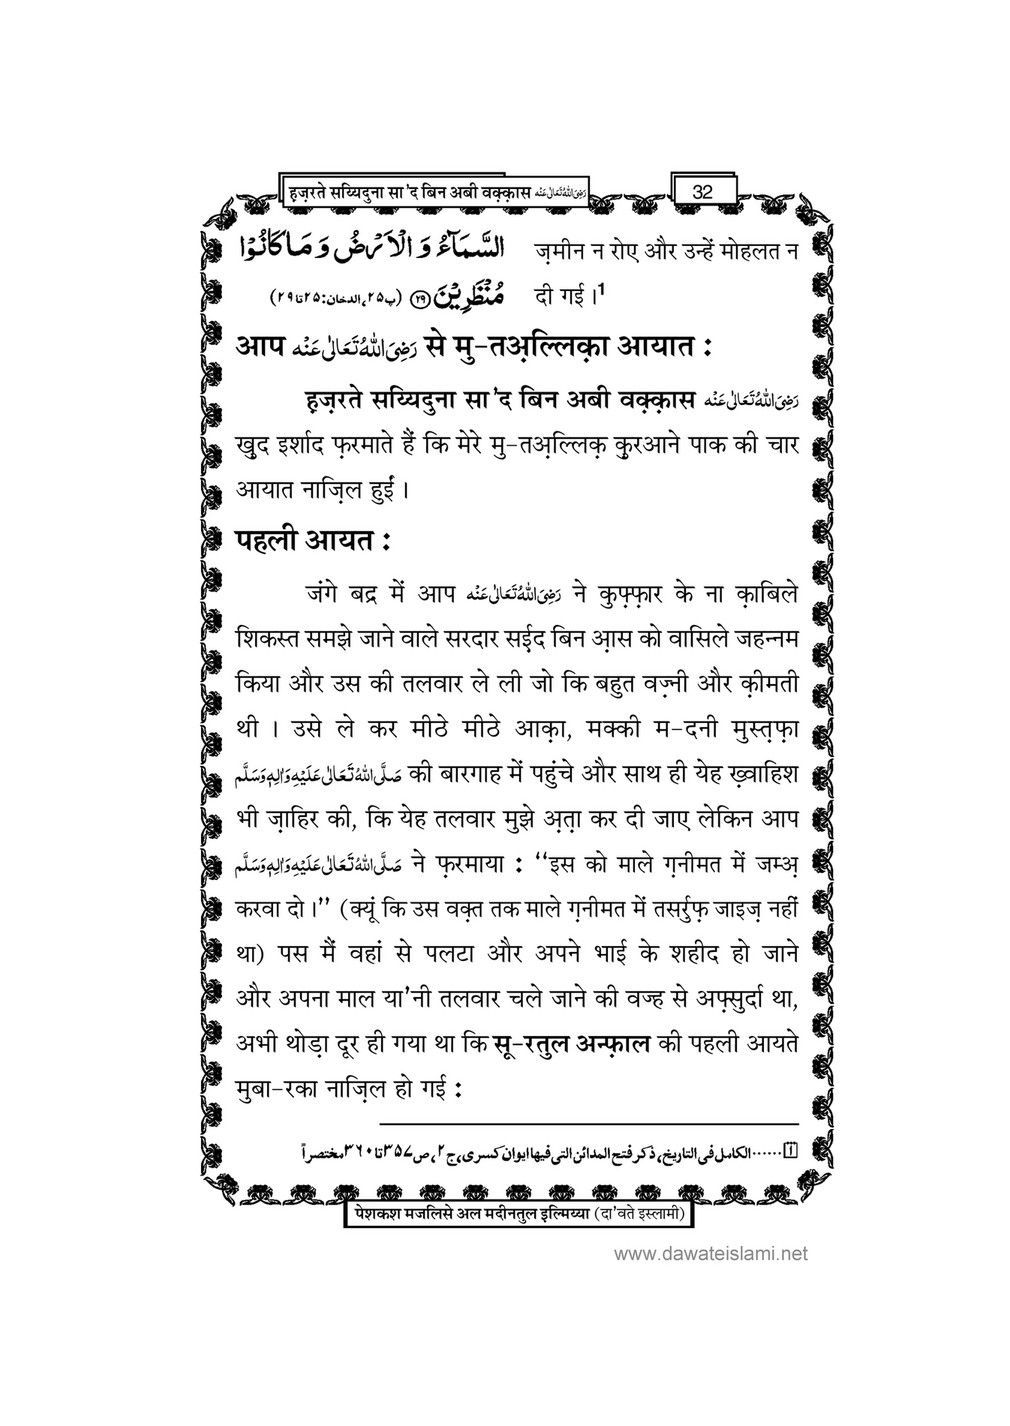 हज़रते सय्यिदुना सा'द बिन अबी वक़्क़ास رَضِیَ اللّٰہُ تَعَالٰی عَنْہ
32
السَّمَآءُ وَ الْاَرْضُ وَ مَا كَانُوْا
مُنْظَرِيْنَ ﴿۲۹﴾ (پ۲۵، الدخان: ۲۵ تا ۲۹)
ज़मीन न रोए और उन्हें मोहलत न
दी गई ।1
आप رَضِیَ اللّٰہُ تَعَالٰی عَنْہ से मु-तअ़ल्लिक़ा आयात :
हज़रते सय्यिदुना सा'द बिन अबी वक़्क़ास رَضِیَ اللّٰہُ تَعَالٰی عَنْہ
खुद इर्शाद फ़रमाते हैं कि मेरे मु-तअ़ल्लिक़ क़ुरआने पाक की चार
आयात नाज़िल हुईं ।
पहली आयत :
जंगे बद्र में आप رَضِیَ اللّٰہُ تَعَالٰی عَنْہ ने कुफ़्फ़ार के ना क़ाबिले
शिकस्त समझे जाने वाले सरदार सईद बिन आ़स को वासिले जहन्नम
किया और उस की तलवार ले ली जो कि बहुत वज़्नी और क़ीमती
थी । उसे ले कर मीठे मीठे आक़ा, मक्की म-दनी मुस्त़फ़ा
صَلَّی اللّٰہُ تَعَالٰی عَلَیْہِ وَاٰلِہٖ وَسَلَّم की बारगाह में पहुंचे और साथ ही येह ख़्वाहिश
भी ज़ाहिर की, कि येह तलवार मुझे अ़त़ा कर दी जाए लेकिन आप
صَلَّی اللّٰہُ تَعَالٰی عَلَیْہِ وَاٰلِہٖ وَسَلَّم ने फ़रमाया : ‘‘इस को माले ग़नीमत में जम्अ़
करवा दो ।’’ (क्यूं कि उस वक़्त तक माले ग़नीमत में तसर्रुफ़ जाइज़ नहीं
था) पस मैं वहां से पलटा और अपने भाई के शहीद हो जाने
और अपना माल या'नी तलवार चले जाने की वज्ह से अफ़्सुर्दा था,
अभी थोड़ा दूर ही गया था कि सू-रतुल अन्फ़ाल की पहली आयते
मुबा-रका नाज़िल हो गई :
[1]......الکامل فی التاریخ، ذکر فتح المدائن التی فیھا ایوان کسری، ج۲، ص۳۵۷ تا ۳۶۰ مختصراً
पेशकश मजलिसे अल मदीनतुल इल्मिय्या (दा'वते इस्लामी)
www.dawateislami.net